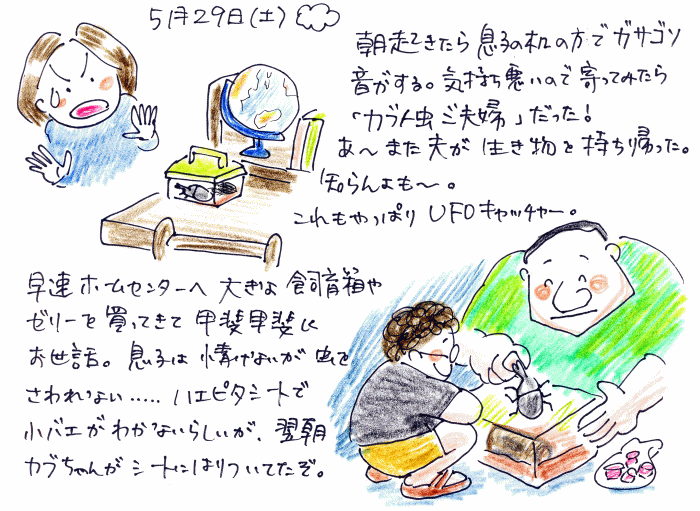 5月29日(土)
朝起きたら 息子の机の方で ガサゴソ
音がする。気持ち悪いので 寄ってみたら
「カブト虫ご夫婦」だった!
あ〜また夫が 生き物を持ち帰った。
知らんよも〜。
これもやっぱり UFOキャッチャー。
早速 ホームセンターへ 大きな 飼育箱や
ゼリーを買ってきて 甲斐甲斐しく
お世話。息子は 情けないが 虫を
さわれない..... ハエピタシートで
小バエがわかないらしいが、翌朝
カブちゃんが シートにはりついてたぞ。